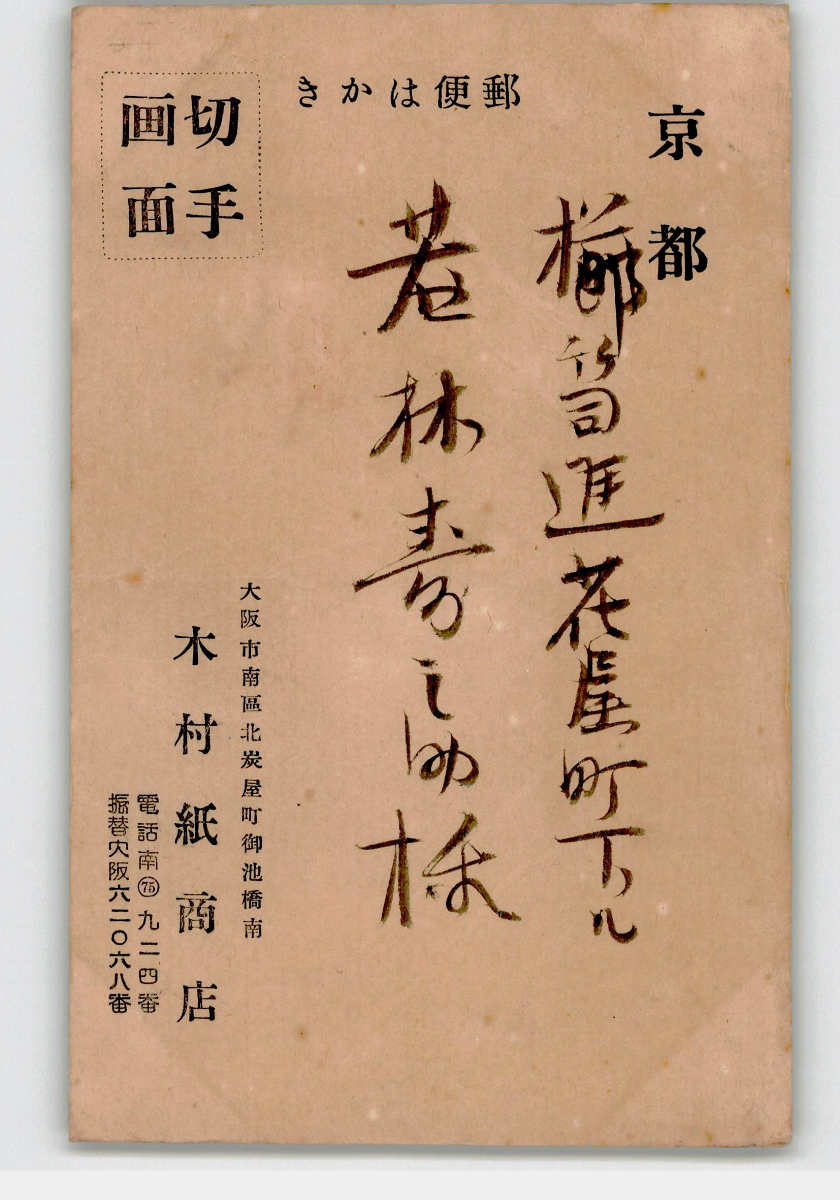 郵便はかき
京都
櫛笥通花屋町下ル
若林寿之助様
切手
画面
大阪市南區北炭屋町御池橋南
木村紙商店
電話南㊆九二四番
振替大阪六二〇六八番